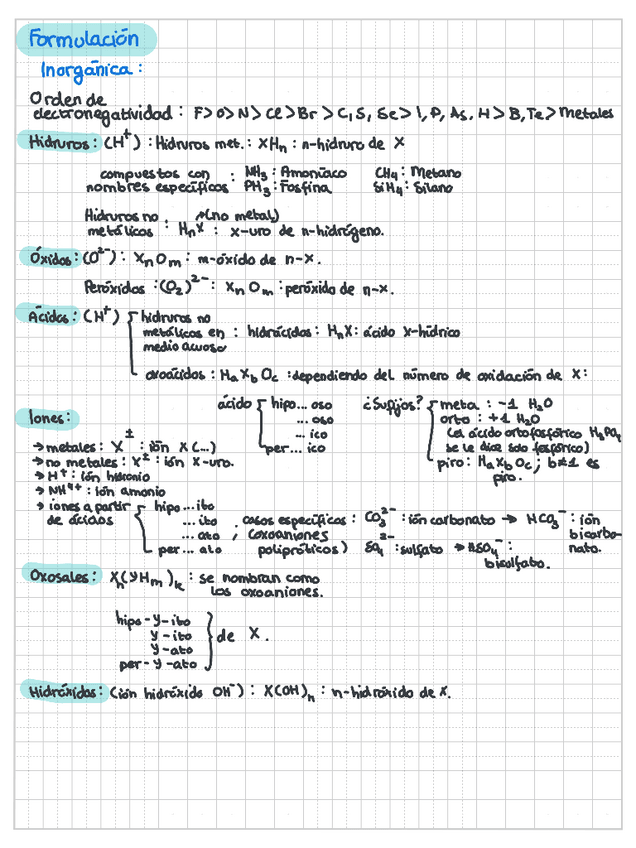 Formulación
Inorgánica :
Orden de
electronegatividad : F > O > N > Cl > Br > C, S, Se > I, P, As, H > B, Te > Metales
Hidruros: (H⁺) : Hidruros met. : XHₙ : n-hidruro de X
compuestos con : NH₃ : Amoníaco CH₄ : Metano
nombres específicos PH₃ : Fosfina SiH₄ : Silano
Hidruros no (no metal)
metálicos : HₙX : x-uro de n-hidrógeno.
Óxidos : (O²⁻) : XₙOₘ : m-óxido de n-x.
Peróxidos : (O₂)²⁻ : XₙOₘ : peróxido de n-x.
Ácidos : (H⁺) { hidruros no
metálicos en : hidrácidos : HₙX : ácido x-hídrico
medio acuoso
oxoácidos : HₐX_bO_c : dependiendo del número de oxidación de X :
ácido { hipo... oso
... oso
... ico
per... ico
¿Sufijos? { meta : -1 H₂O
orto : +1 H₂O
(al ácido ortofosfórico H₃PO₄
se le dice solo fosfórico)
piro : HₐX_bO_c ; b≠1 es
piro.
Iones :
→ metales : X^± : ión X (...)
→ no metales : X^± : ión X-uro.
→ H⁺ : ión hidronio
→ NH⁴⁺ : ión amonio
→ iones a partir { hipo ... ito
de ácidos ... ito
... ato
per... ato
, casos específicos : CO₃²⁻ : ión carbonato → HCO₃⁻ : ión
(oxoaniones bicarbo-
polipróticos) SO₄²⁻ : sulfato → HSO₄⁻ : nato.
bisulfato.
Oxosales : Xₙ(YHₘ)ₖ : se nombran como
los oxoaniones.
hipo-y-ito
y-ito
y-ato
per-y-ato
} de X.
Hidróxidos : (ión hidróxido OH⁻) : X(OH)ₙ : n-hidróxido de X.